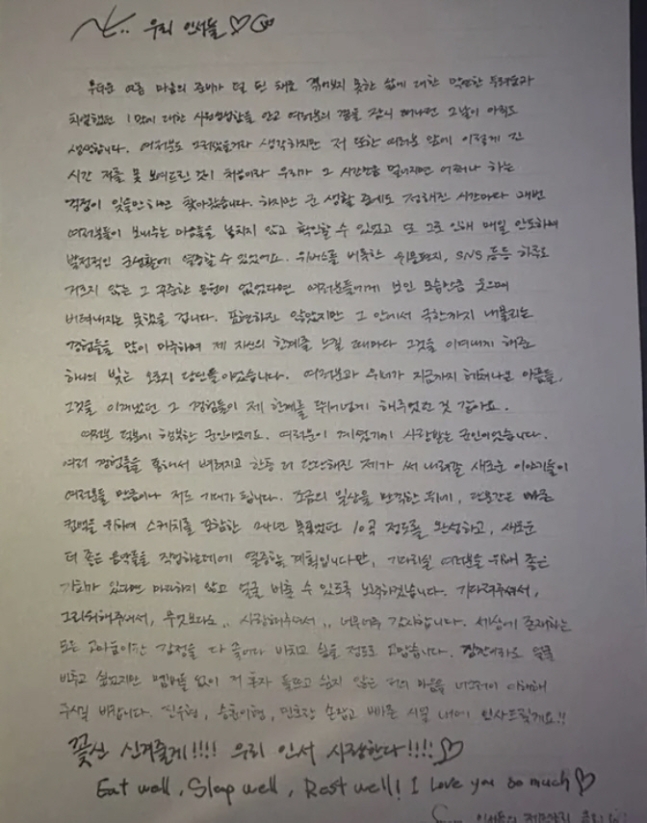 우리 인서들♡
무더운 여름 마음의 준비가 덜 된 채로 겪어보지 못한 삶에 대한 막연한 두려움과
치열했던 1막에 대한 시원섭섭함을 안고 여러분의 곁을 잠시 떠나던 그날이 아직도
생생합니다. 여러분도 그러셨을거라 생각하지만 저 또한 여러분 앞에 이렇게 긴
시간 저를 못 보여드린 것이 처음이라 우리가 그 시간만큼 멀어지면 어쩌나 하는
걱정이 잊을만하면 찾아왔습니다. 하지만 군 생활 중에도 정해진 시간마다 매번
여러분들이 보내주는 마음들을 놓치지 않고 확인할 수 있었고 또 그로 인해 매일 안도하며
발전적인 군생활에 열중할 수 있었어요. 위버스를 비롯한 위문편지, SNS 등등 하루도
거르지 않는 그 꾸준한 응원이 없었다면 여러분들에게 보인 모습만큼 웃으며
버텨내지는 못했을 겁니다. 표현하진 않았지만 그 안에서 극한까지 내몰리는
경험들을 많이 마주하며 제 자신의 한계를 느낄 때마다 그것을 이겨내게 해준
하나의 빛은 오로지 당신들이었습니다. 여러분과 우리가 지금까지 헤쳐나온 아픔들,
그것을 이겨냈던 그 경험들이 제 한계를 뛰어넘게 해주었던 것 같아요.
여러분 덕분에 행복한 군인이었어요. 여러분이 계셨기에 사랑받는 군인이었습니다.
여러 경험들을 통해서 버려지고 한층 더 단단해진 제가 써 내려갈 새로운 이야기들이
여러분들 만큼이나 저도 기대가 됩니다. 조금의 일상을 만끽한 뒤에, 당분간은 빠른
컴백을 위하여 스케치를 포함한 24년 묵혔던 10곡 정도를 완성하고, 새로운
더 좋은 음악들을 작업하는데에 열중할 계획입니다만, 기다리실 여러분을 위해 좋은
기회가 있다면 마다하지 않고 얼굴 비출 수 있도록 노력하겠습니다. 기다려주셔서,
그리워해주셔서, 무엇보다도.. 사랑해주셔서.. 너무너무 감사합니다. 세상에 존재하는
모든 고마움이란 감정을 다 끌어다 바치고 싶을 정도로 고맙습니다. 얼굴
비추고 싶었지만 멤버들 없이 저 혼자 들뜨고 싶지 않은 저의 마음을 너그러이 이해해
주시길 바랍니다. 진우형, 승훈이형, 민호랑 손잡고 빠른 시일 내에 인사드릴게요!!
꽃신 신겨줄게!!!! 우리 인서 사랑한다!!!!♡
Eat well, Sleep well, Rest well! I love you so much♡